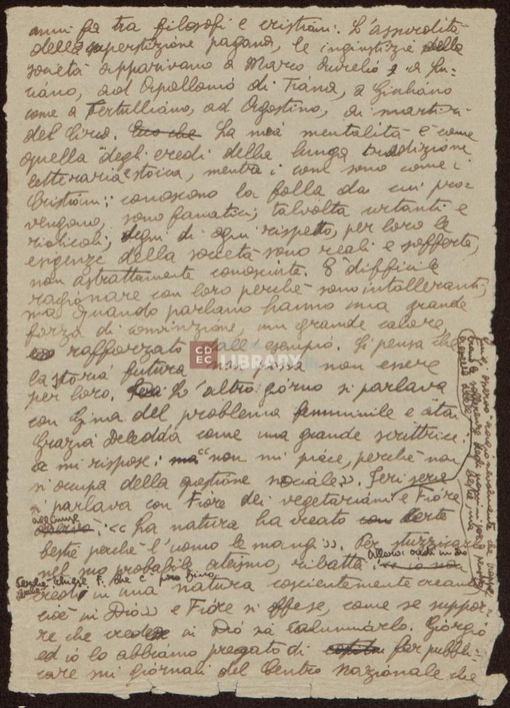 anni fa tra filosofi e cristiani. L'assurdità
della superstizione pagana, le ingiustizie della
società apparivano a Marco Aurelio e a Lu-
ciano, ad Apollonio di Tiana, a Giuliano
come a Tertulliano, ad Agostino, ai martiri
del Circo. La mia mentalità è come
quella degli eredi della lunga tradizione
letteraria e storica, mentre i com. sono come i
Cristiani: conoscono la folla da cui pro-
vengono, sono fanatici, talvolta urtanti e
ridicoli, degni di ogni rispetto, per loro le
esigenze della società sono reali e sofferte,
non astrattamente conosciute. È difficile
ragionare con loro perché sono intolleranti,
ma quando parlano hanno una grande
forza di convinzione, un grande calore,
rafforzato dall'esempio. Si pensa che
la storia futura non possa non essere
per loro. L'altro giorno si parlava
con Gina del problema femminile e citai
Grazia Deledda come una grande scrittrice.
a mi rispose: "non mi piace, perché non
si occupa della questione sociale". Ieri sera
si parlava con Fiore dei vegetariani e Fiore
aggiunse
: "La natura ha creato certe
bestie perché l'uomo le mangi". Per stuzzicare
Allora credi in dio
nel suo probabile ateismo, ribattei:
F. che
credi in una natura coscientemente creante
cioè in Dio" e Fiore si offese, come se suppor-
re che credesse in Dio sia calunniarlo. Giorgio
ed io lo abbiamo pregato di far pubbli-
care sui giornali del Centro Nazionale che
CDEC LIBRARY